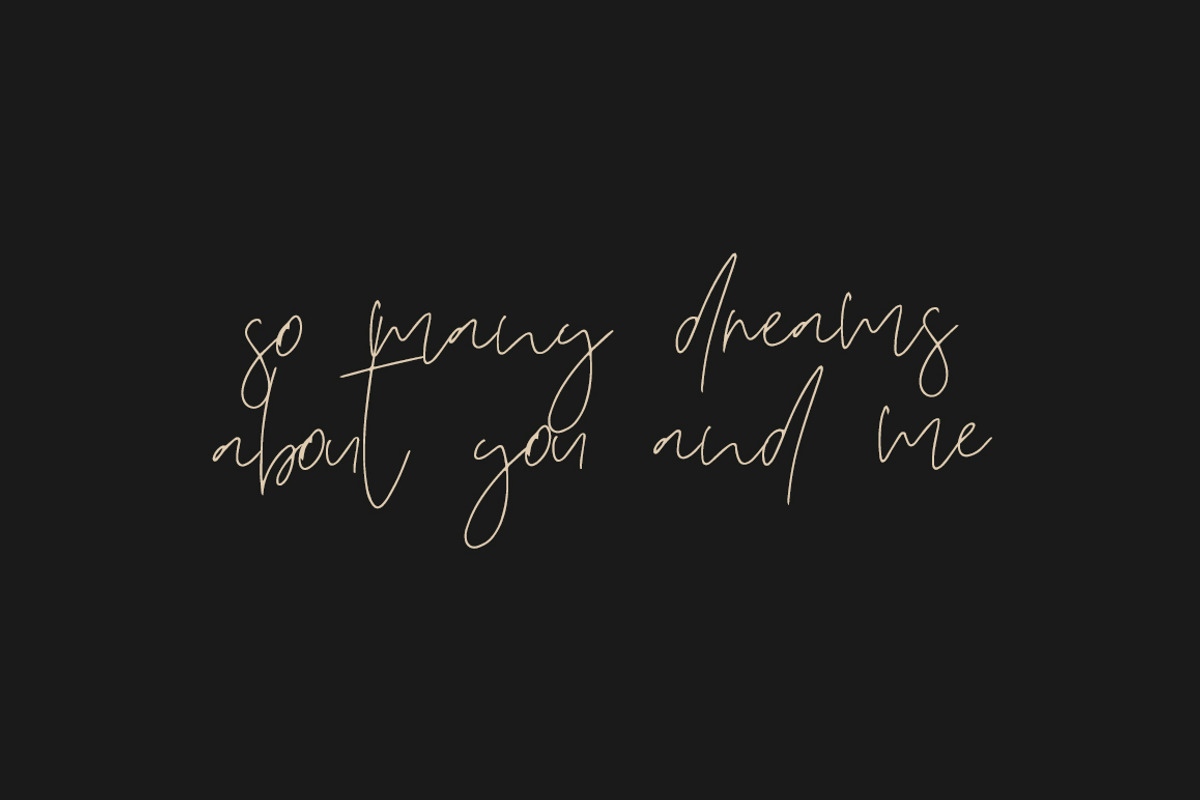 so many dreams
about you and me